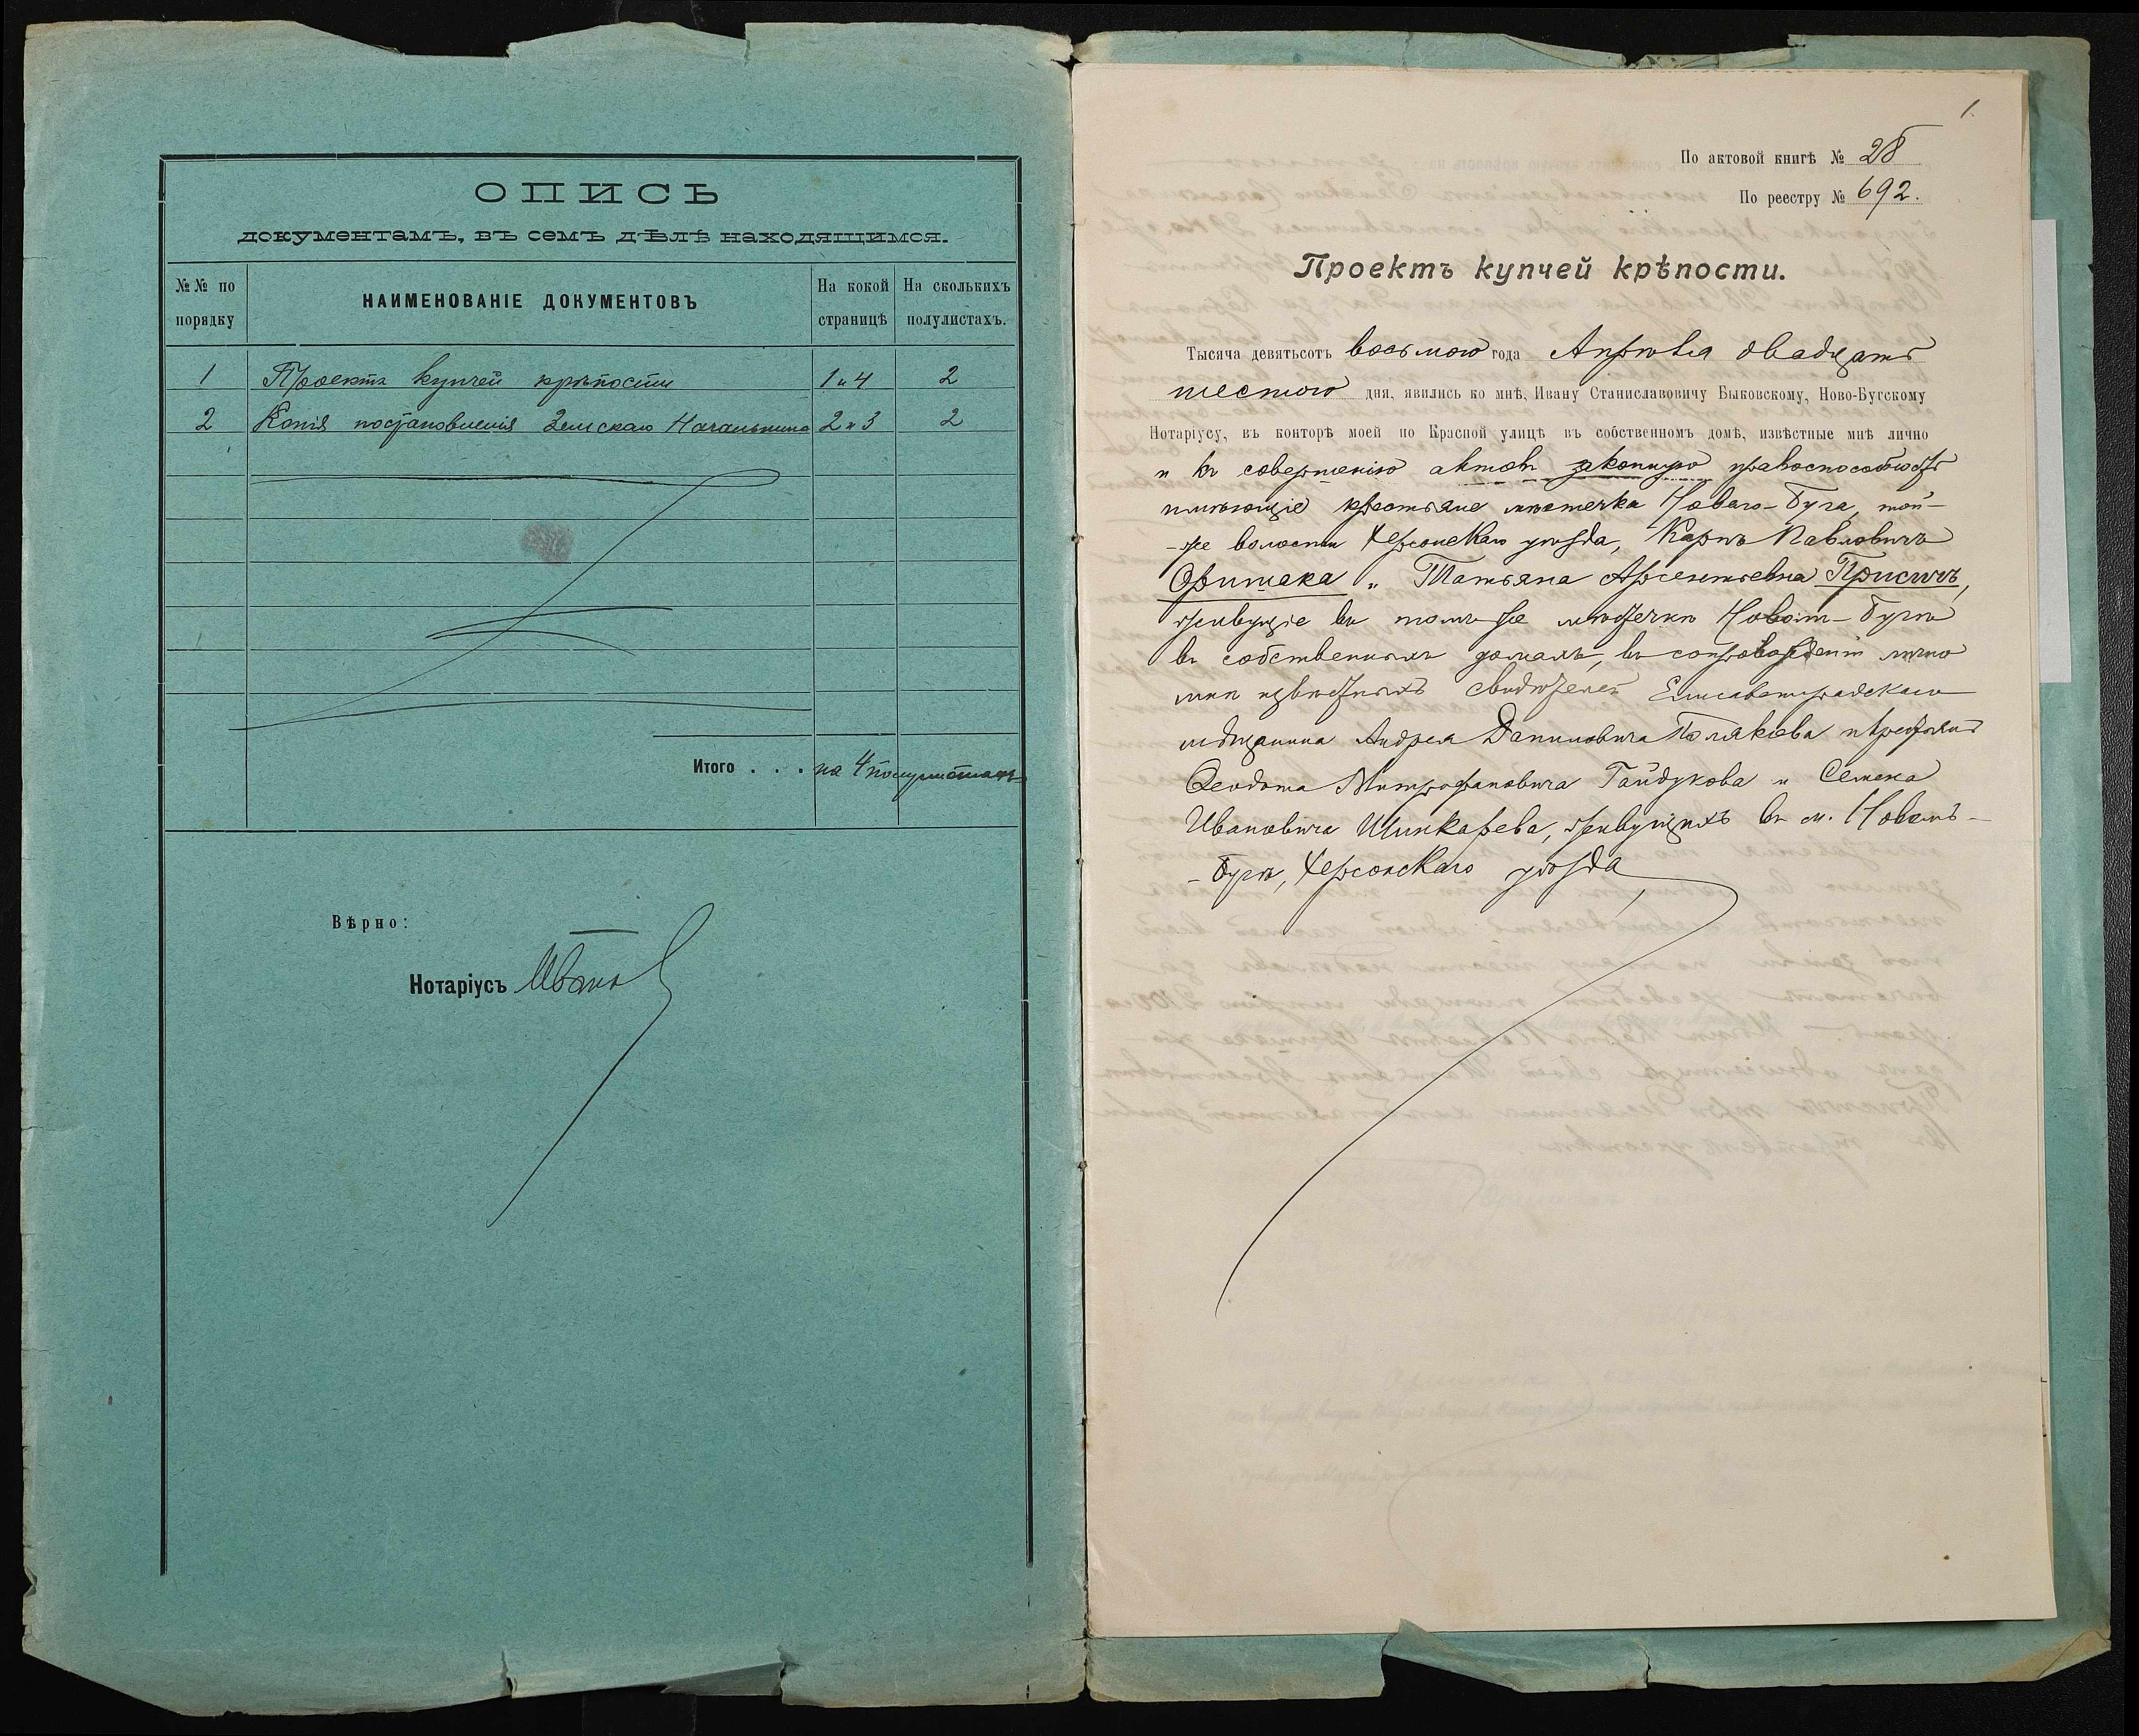 ОПИСЬ
документамъ, въ семъ дѣлѣ находящимся.
№№ по порядку
НАИМЕНОВАНІЕ ДОКУМЕНТОВЪ
На кокой страницѣ
На сколькихъ полулистахъ.
1 Проектъ купчей крѣпости 1 и 4 2
2 Копія постановленія Земскаго Начальника 2 и 3 2
Итого . . . на 4 полулистахъ
Вѣрно:
Нотаріусъ
1.
По актовой книгѣ № 28
По реестру № 692.
Проектъ купчей крѣпости.
Тысяча девятьсотъ восьмого года Апрѣля двадцать
шестого дня, явились ко мнѣ, Ивану Станиславовичу Быковскому, Ново-Бугскому
Нотаріусу, въ конторѣ моей по Красной улицѣ въ собственномъ домѣ, извѣстные мнѣ лично
и къ совершенію актовъ законную правоспособность
имѣющіе крестьяне мѣстечка Новаго-Буга, той-
-же волости Херсонскаго уѣзда, Карпъ Павловичъ
и Татьяна Арсентьевна Присичъ,
живущіе въ томъ же мѣстечкѣ Новомъ-Бугѣ
въ собственныхъ домахъ, въ сопровожденіи лично
мнѣ извѣстныхъ свидѣтелей Елисаветградскаго
мѣщанина Андрея Даниловича Полякова и крестьянъ
Ѳеодота Митрофановича Гайдукова и Семена
Ивановича Шинкарева, живущихъ въ м. Новомъ-
-Бугѣ, Херсонскаго уѣзда